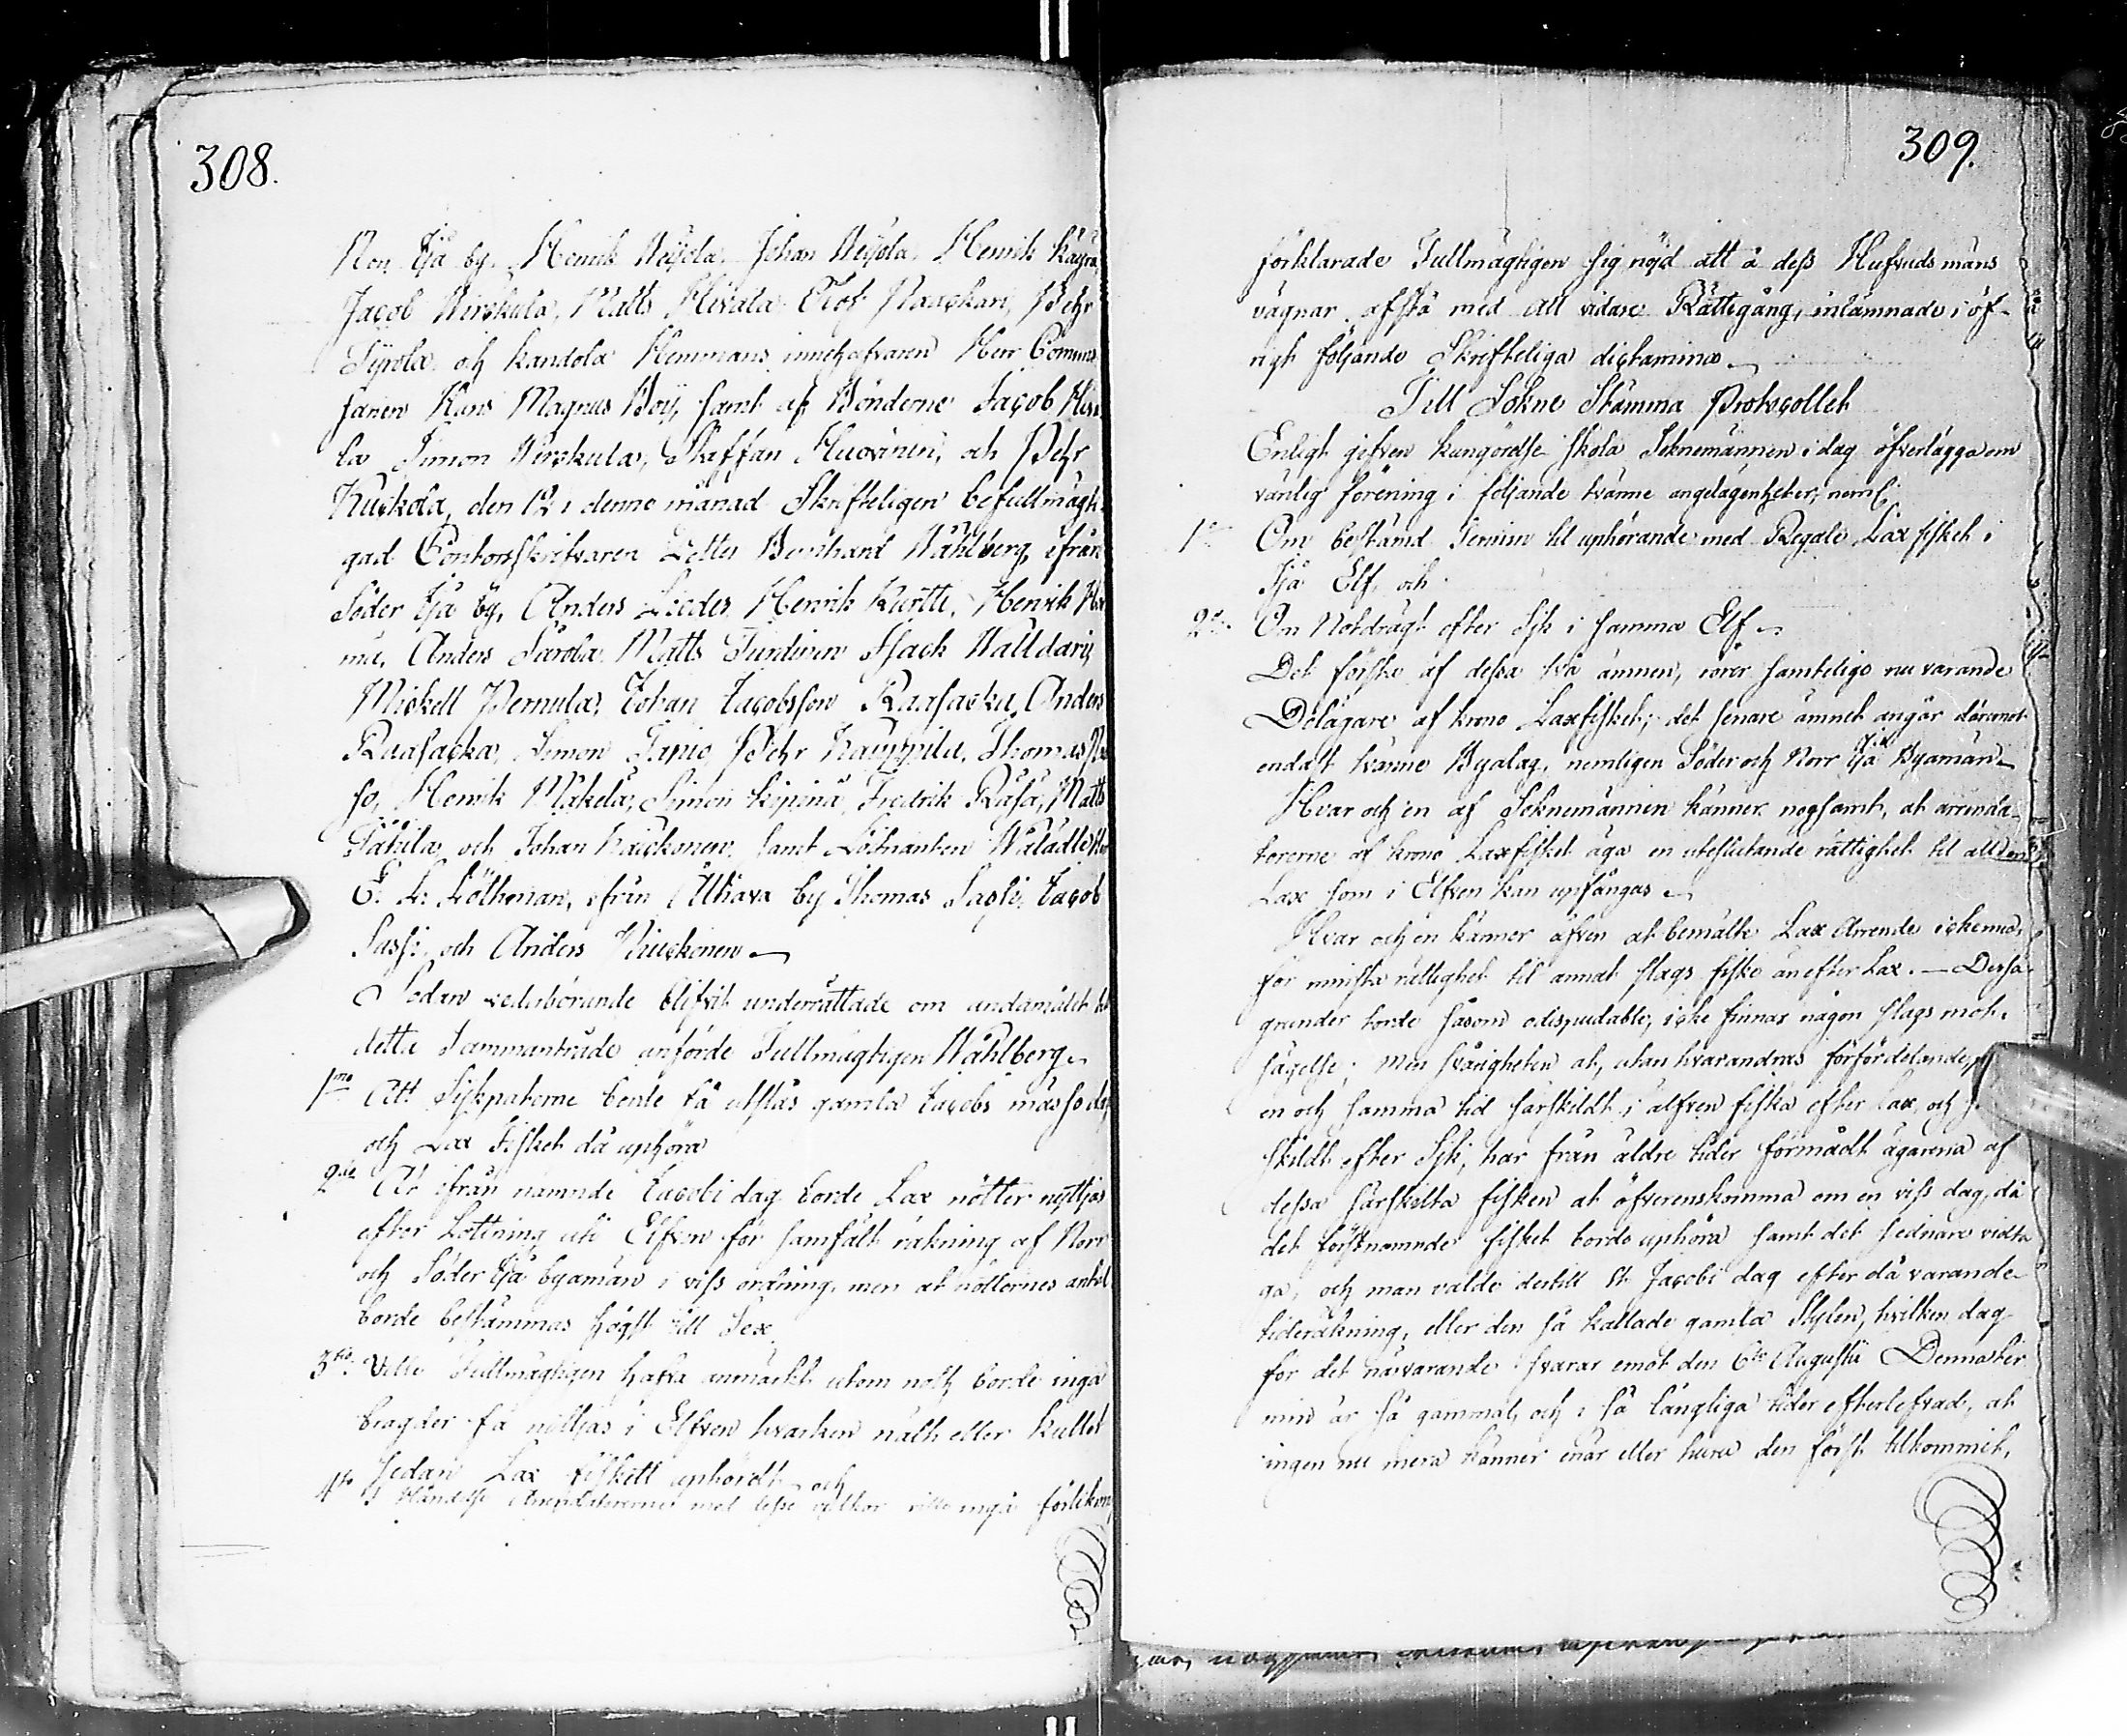 308.
Norr Ijå by, Henrik Weijola, Johan Weijola, Henrik Käÿrä,
Jacob Wirskula, Matts Hivala, Olof Naaskari, Pehr
Tÿrola, och Kandola Hemmans innehafvaren Herr Commis-
sarien Hans Magnus Boij, samt af Bönderne Jacob
la Simon Wirskula, Staffan Huovinen, och Pehr
Kuskola, den 12 i denne månad Skrifteligen befullmägti-
gad Contorsskrifvaren Petter Bernhard Wåhlberg, ifrån
Söder Ijå by, Anders Liedes, Henrik Kurtti, Henrik
ma, Anders Tarola, Matts Turdinen Isack Walldari,
Mickell Pernula, Johan Jacobsson Raasacka, Anders
Raasacka, Simon Jänis, Pehr Kauppila, Thomas
so, Henrik Mäkelä, Simon Kipinä, Fredrik Räsä, Matts
Tähila och Johan Kaickonen, samt Löitnanten Wälädle Herr
E. L. Löthman, ifrån Olhava by Thomas Sassi, Jacob
Sassi, och Anders Kiuckonen
Sedan vederbörande blifvit underrättade om ändamålet til
detta Sammanträde anförde Fullmägtigen Wåhlberg
1mo Att Sijkpaterne borde få utslås gamla Jacobs mässo dag
och Lax Fisket då uphöra
2do At ifrån nämnde Jacobi dag borde Lax nötter nyttjas
efter Lottning uti Elfven för samfält räkning af Norr
och Söder Ijå byamän i viss ordning, men at nötternes antal
borde bestämmas högst till Sex.
3tio Ville Fullmägtigen hafva anmärkt utom noth borde inga
bragder få nyttjas i Elfven hvarken näth eller kullot
sedan Lax fiskett uphördt och
4to I Händelse Arrendatorerne med desse vilkor ville ingå förlikning
309.
förklarade Fullmägtigen sig nöjd att å dess Hufvudsmäns
vägnar afstå med all vidare Rättegång, inlämnade i öf-
rigt följande Skrifteliga dictamina
Till Sokne Stämma Protocollet
Enligt gifven kungörelse skola Soknemännen i dag öfverlägga om
vänlig förening i följande tvänne angelägenheter, neml.
1o Om bestämd Termin til uphörande med Regale Laxfisket i
Ijå Elf, och
2o Om Notdrägt efter Sik i samma Elf
Det förste af dessa två ämnen, rörer samtelige nu varande
Delägare af krono Laxfisket; det senare ämnet angår däremot
endast tvänne Byalag, nemligen Söder och Norr Ijå Byamän
Hvar och en af Soknemännen känner nogsamt, at arrenda-
torerne af krono Laxfisket äga en uteslutande rättighet til all den
Lax som i Elfven kan upfångas
Hvar och en känner äfven at bemälte Lax Arrende icke med-
för minsta rättighet til annat slags fiske än efter Lax. — Dessa
grunder torde såsom odisputable, icke finnas någon slags mot-
sägelse; Men svårigheten at, utan hvarandras förfördelande,
en och samma tid särskildt i älfven fiska efter Lax, och
skildt efter Sik, har från äldre tider förmådt ägarena af
dessa särskilta fisken at öfverenskomma om en viss dag, då
det förstnämnde fisket borde uphöra samt det sednare vidta-
ga, och man valde dertill St. Jacobi dag efter då varande
tideräkning, eller den så kallade gamla Stylen, hvilken dag
för det närvarande svarar emot den 6te Augusti Denna ter-
min är så gammal, och i så långliga tider efterlefvad, at
ingen nu mera känner enär eller huru den först tilkommit,